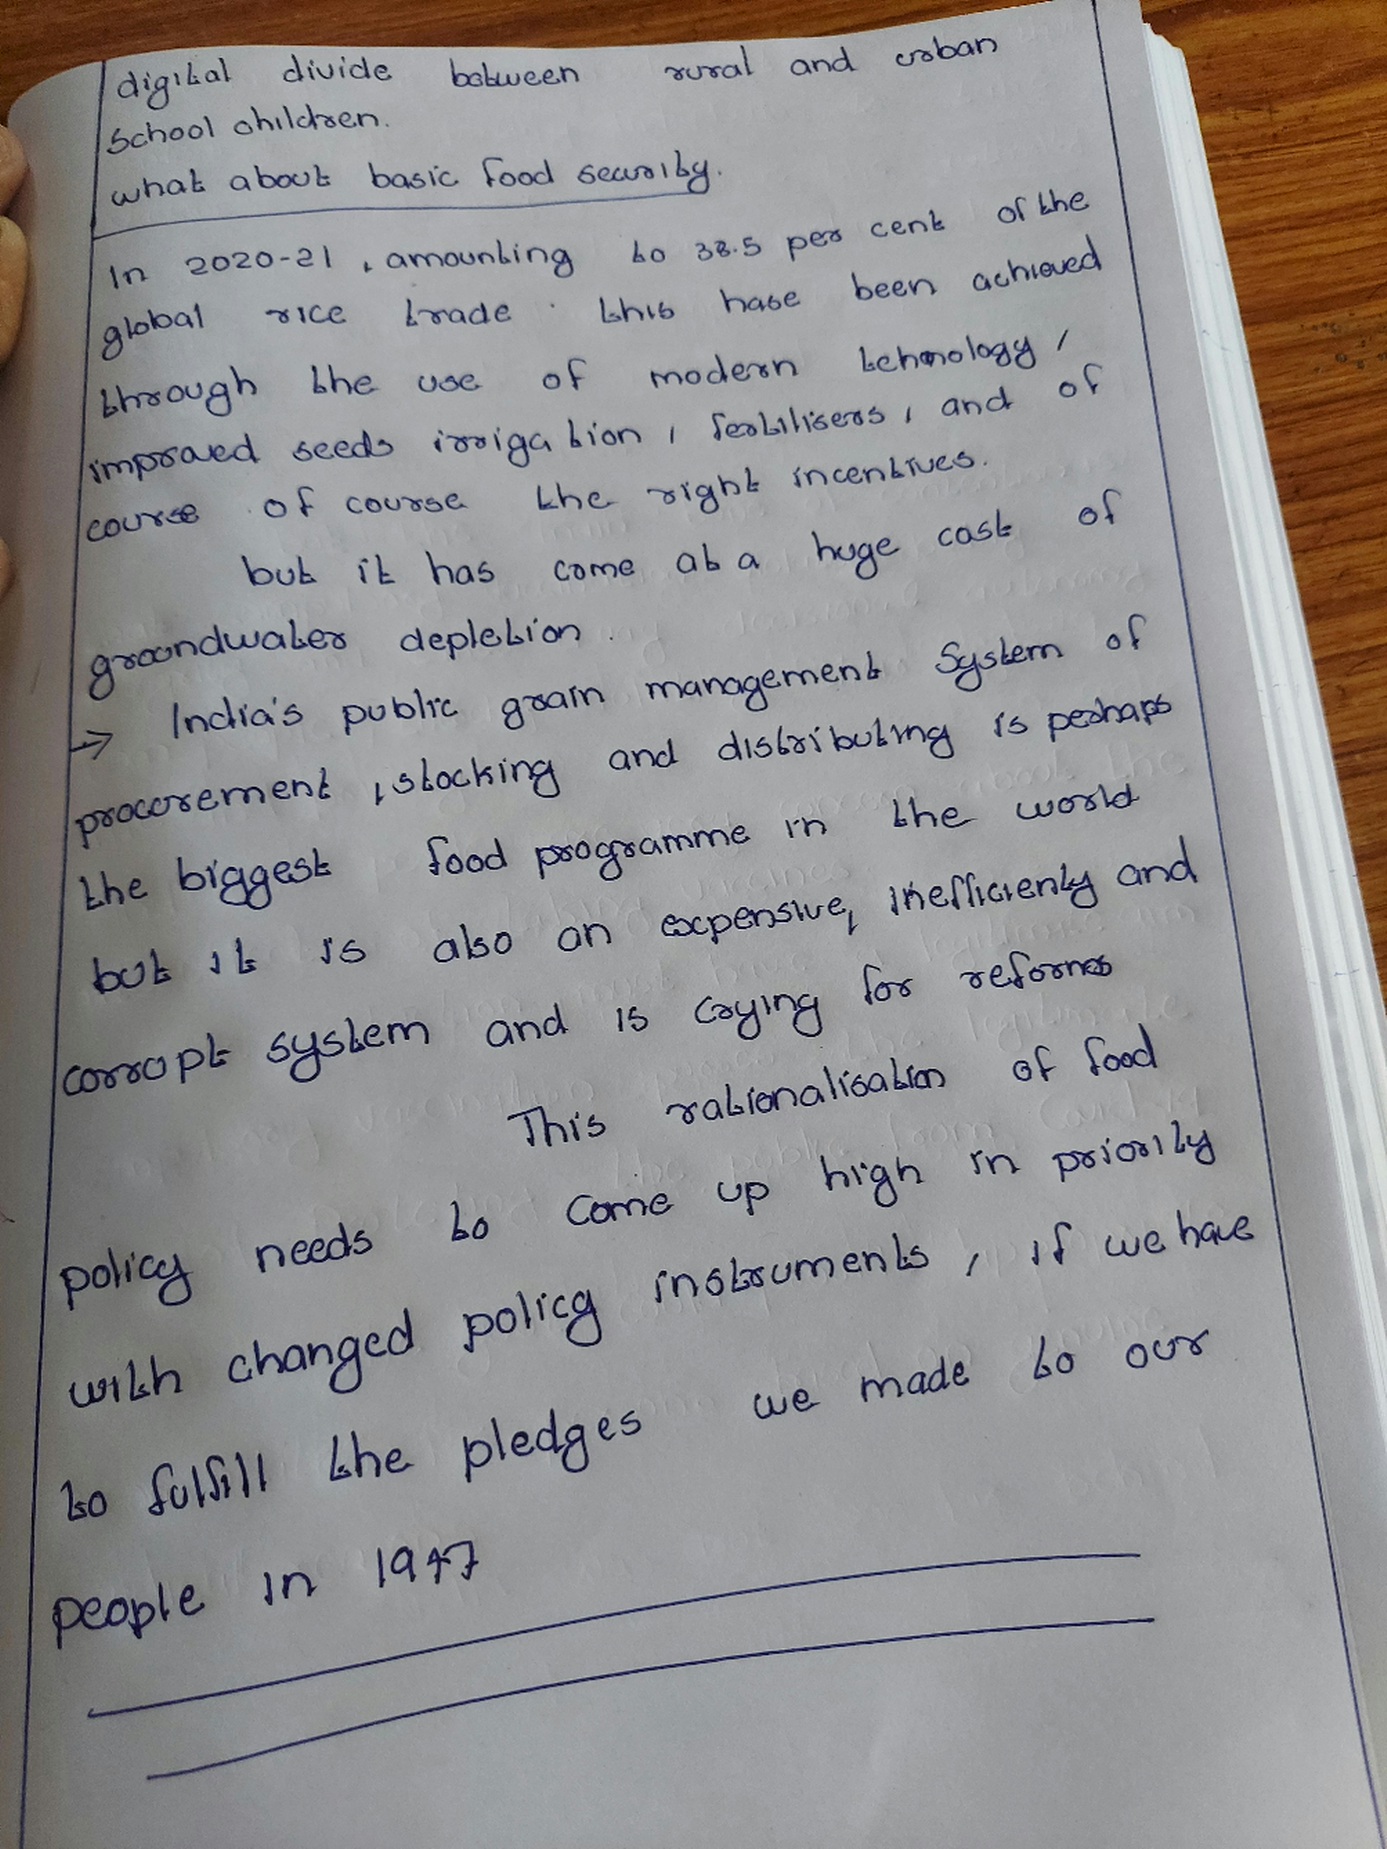 digital divide between rural and urban
School children.
what about basic food security.
In 2020-21, amounting to 38.5 per cent of the
global rice trade. this have been achieved
through the use of modern tehnology,
improved seeds irrigation, fertilisers, and of
course of course the right incentives.
but it has come at a huge cast of
groundwater depletion.
→ India's public grain management System of
procurement, stocking and distributing is perhaps
the biggest food programme in the world
but it is also an expensive, inefficienty and
corrupt system and is crying for reforms
This rationalisation of food
policy needs to come up high in priority
with changed policy instruments, if we have
to fulfill the pledges we made to our
people in 1947